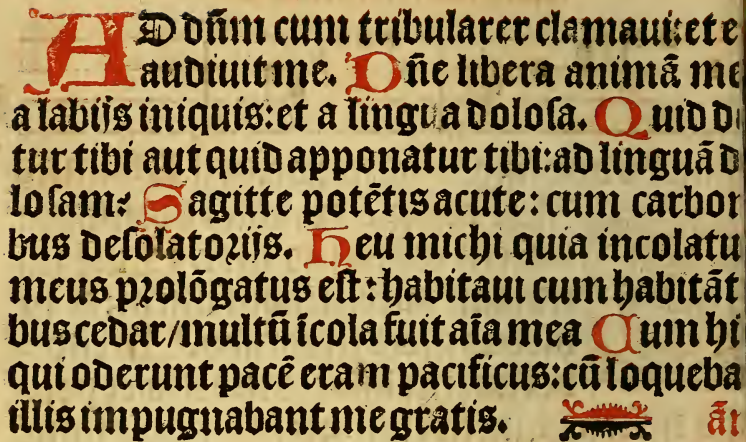 AD dñm cum tribularer clamaui: et e
audiuit me. Dñe libera animã me
a labijs iniquis: et a lingua dolosa. Quid d
tur tibi aut quid apponatur tibi: ad linguã d
losam? Sagitte potẽtis acute: cum carbon
bus desolatorijs. Heu michi quia incolatu
meus prolõgatus est: habitaui cum habitãt
bus cedar/multũ ĩcola fuit aĩa mea Cum hi
qui oderunt pacẽ eram pacificus: cũ loqueba
illis impugnabant me gratis. ãn